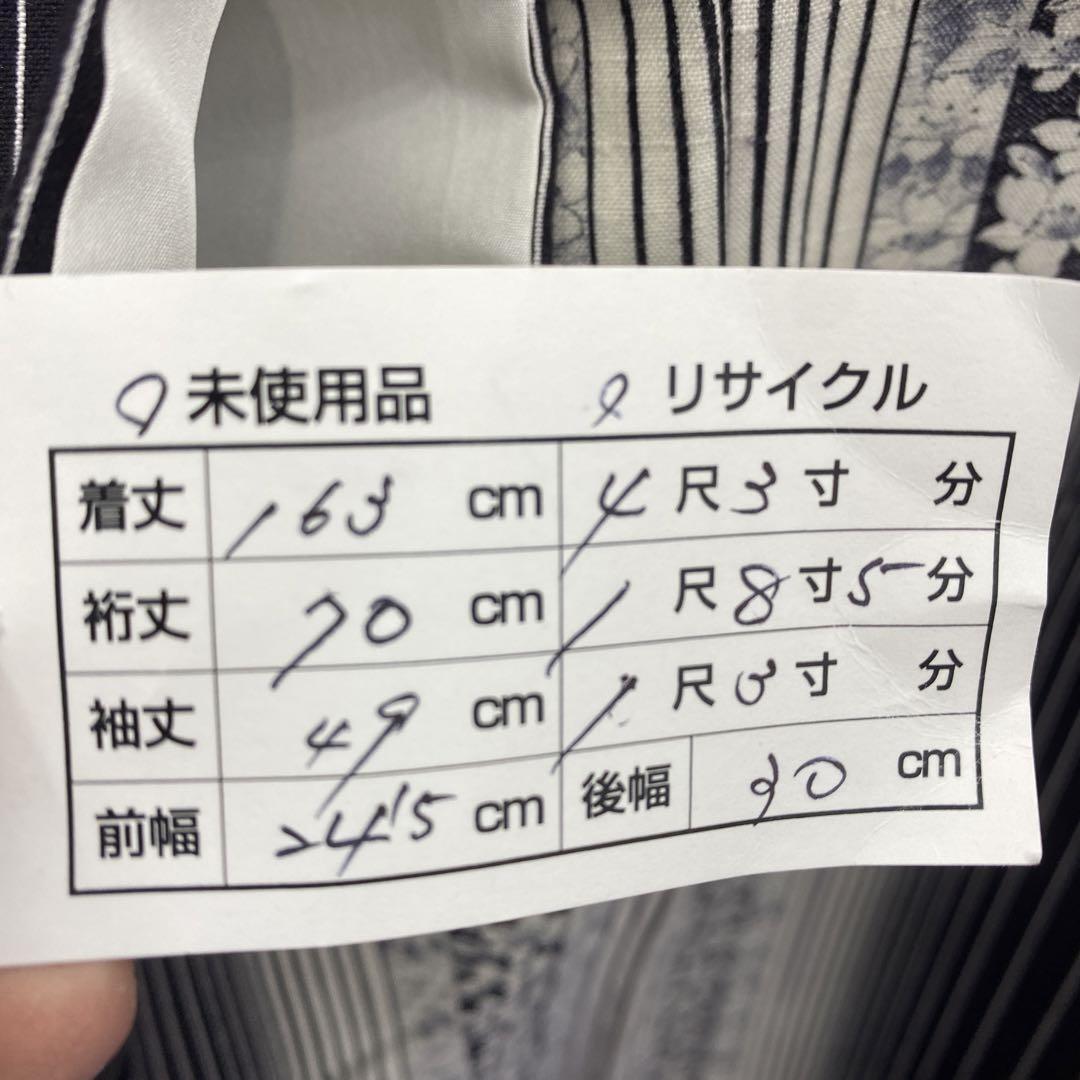 未使用品 リサイクル
着丈 163 cm 4尺3寸 分
裄丈 70 cm 1尺8寸5分
袖丈 49 cm 1尺3寸 分
前幅 24.5 cm 後幅 30 cm